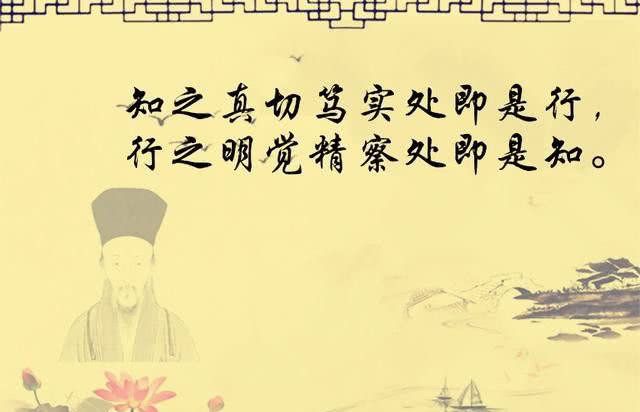 知之真切笃实处即是行，
行之明觉精察处即是知。